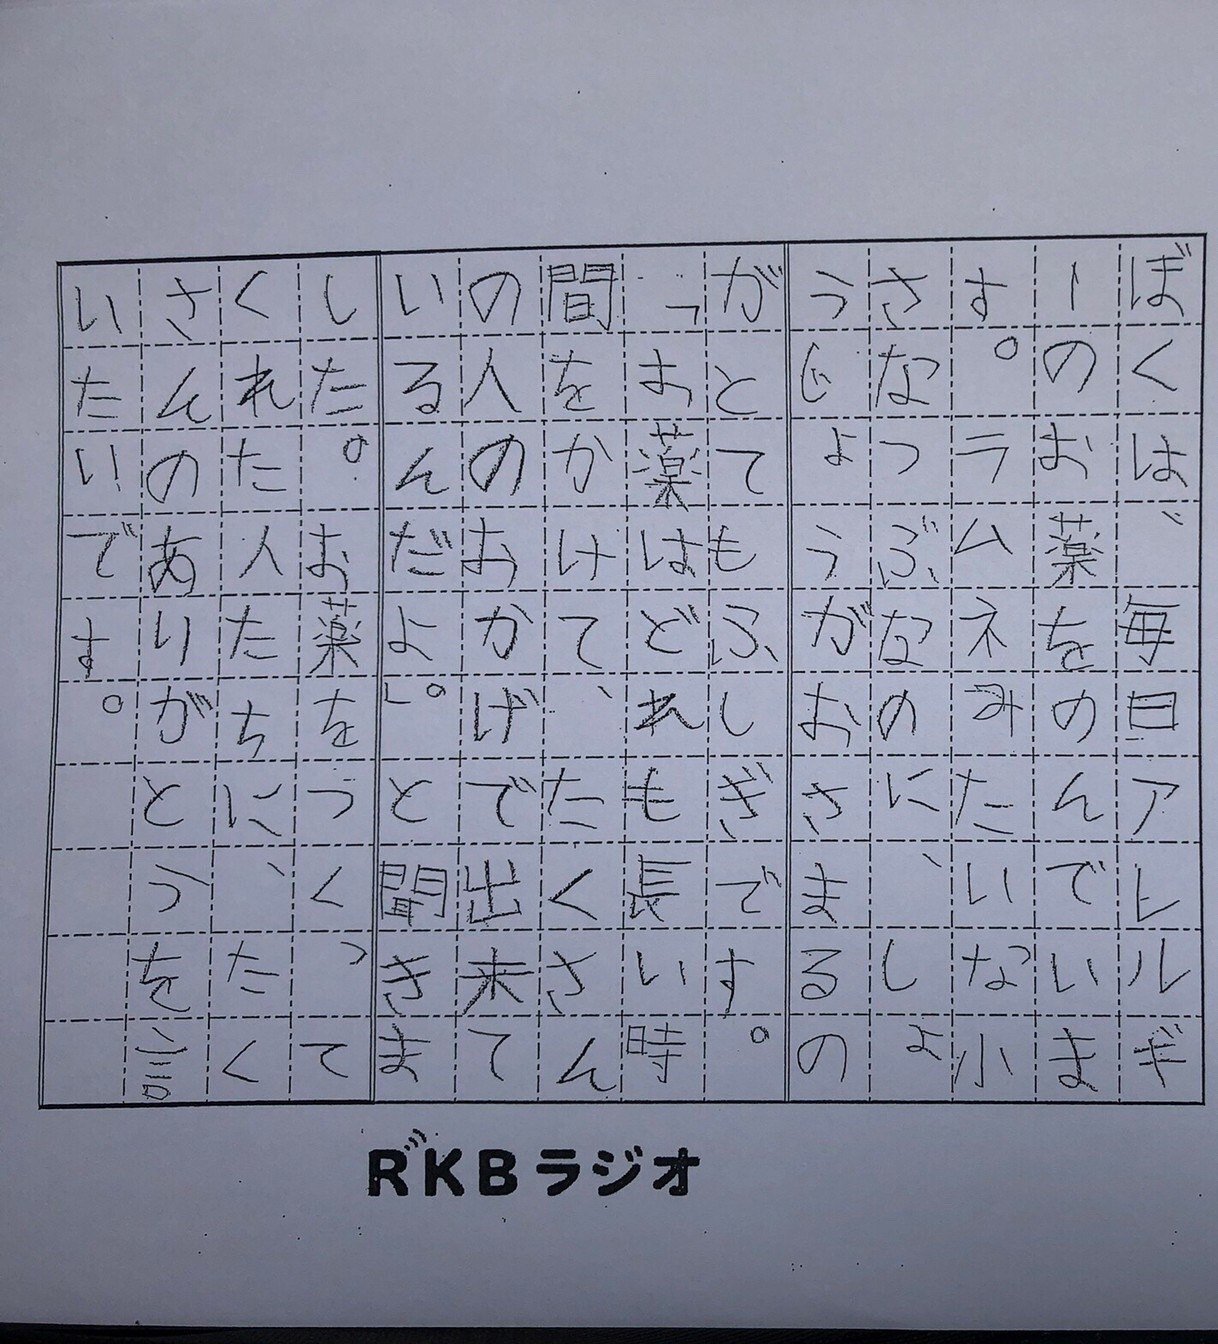 ぼくは、毎日アレルギ
ーのお薬をのんでいま
す。ラムネみたいな小
さなつぶなのに、しょ
うじょうがおさまるの
がとてもふしぎです。
「お薬はどれも長い時
間をかけて、たくさん
の人のおかげで出来て
いるんだよ。」と聞きま
した。お薬をつくって
くれた人たちに、たく
さんのありがとうを言
いたいです。
RKBラジオ